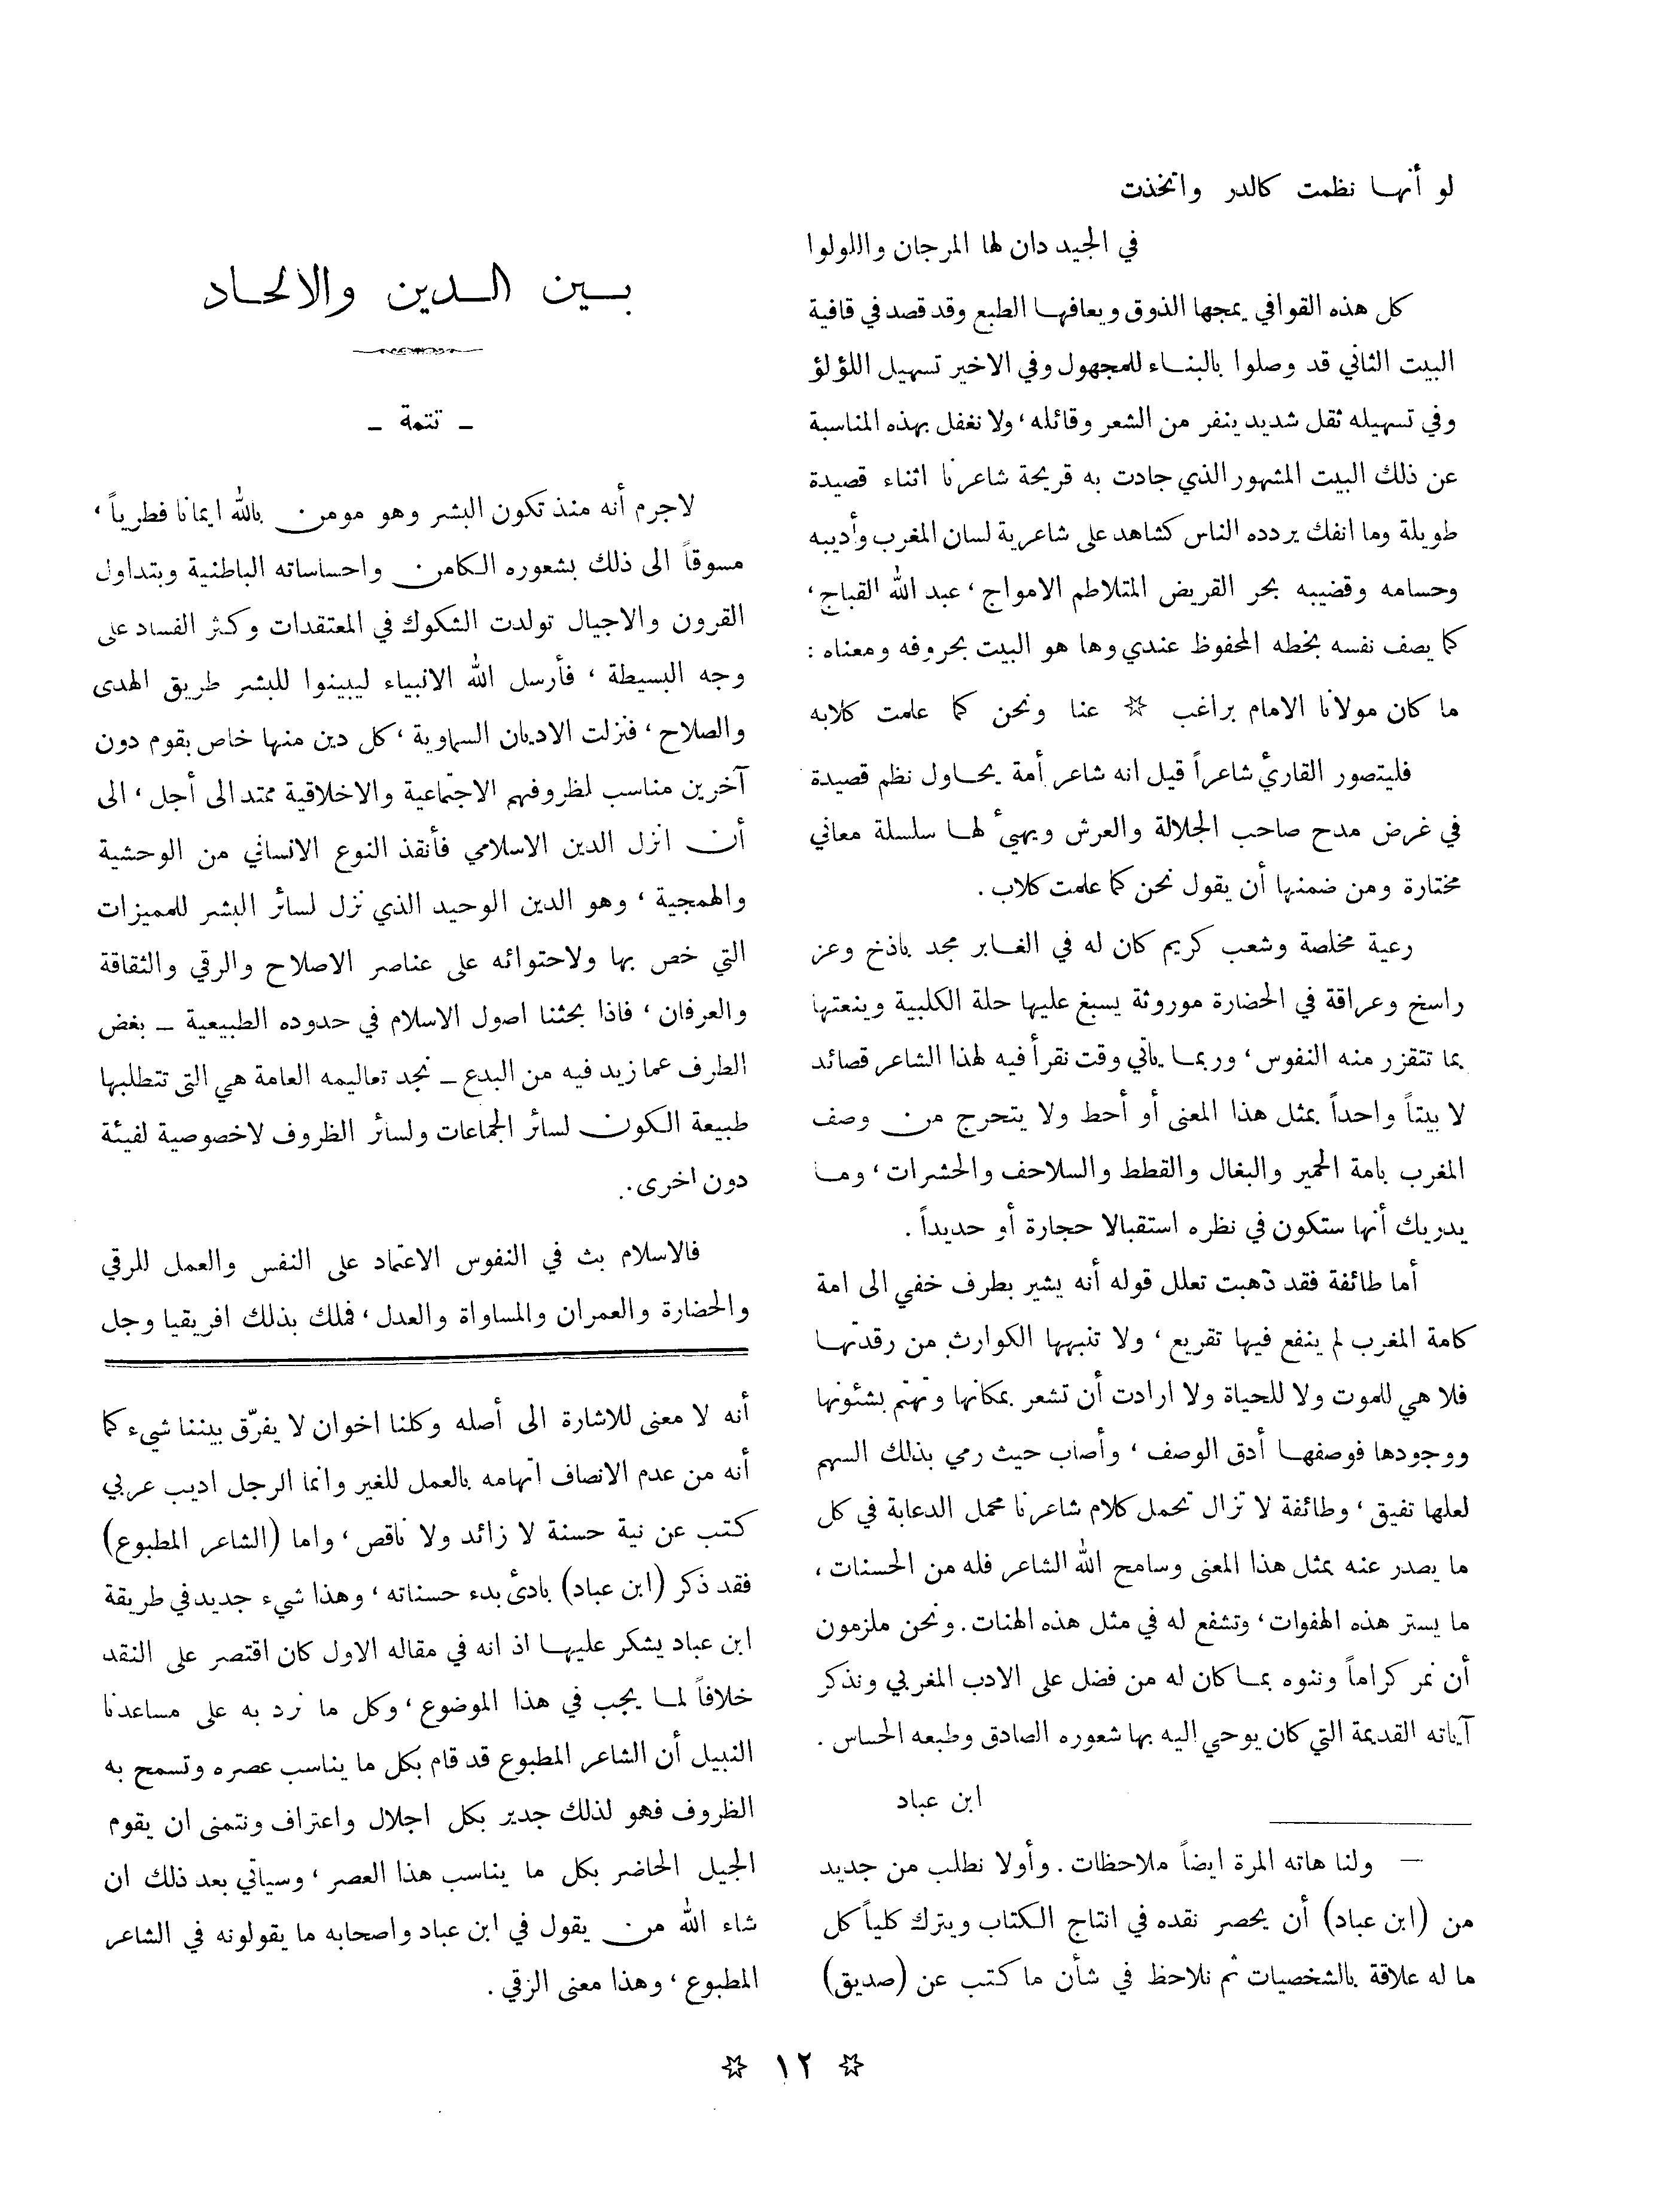 لو أنها نظمت كالدر واتخذت
في الجيد دان لها المرجان واللولوا
كل هذه القوافي يمجها الذوق ويعافها الطبع وقد قصد في قافية
البيت الثاني قد وصلوا بالبناء للمجهول وفي الاخير تسهيل اللؤلؤ
وفي تسهيله ثقل شديد ينفر من الشعر وقائله، ولا نغفل بهذه المناسبة
عن ذلك البيت المشهور الذي جادت به قريحة شاعرنا اثناء قصيدة
طويلة وما انفك يردده الناس كشاهد على شاعرية لسان المغرب وأديبه
وحسامه وقضيبه بحر القريض المتلاطم الامواج، عبد الله القباج،
كما يصف نفسه بخطه المحفوظ عندي وها هو البيت بحروفه ومعناه :
ما كان مولانا الامام براغب ☆ عنا ونحن كما علمت كلابه
فليتصور القارئ شاعراً قيل انه شاعر أمة يحاول نظم قصيدة
في غرض مدح صاحب الجلالة والعرش ويهيئ لها سلسلة معاني
مختارة ومن ضمنها أن يقول نحن كما علمت كلاب .
رعية مخلصة وشعب كريم كان له في الغابر مجد باذخ وعز
راسخ وعراقة في الحضارة موروثة يسبغ عليها حلة الكلبية وينعتها
بما تتقزر منه النفوس، وربما ياتي وقت نقرأ فيه لهذا الشاعر قصائد
لا بيتاً واحداً بمثل هذا المعنى أو أحط ولا يتحرج من وصف
المغرب بامة الحمير والبغال والقطط والسلاحف والحشرات، وما
يدريك أنها ستكون في نظره استقبالا حجارة أو حديداً .
أما طائفة فقد ذهبت تعلل قوله أنه يشير بطرف خفي الى امة
كامة المغرب لم ينفع فيها تقريع، ولا تنبهها الكوارث من رقدتها
فلا هي للموت ولا للحياة ولا ارادت أن تشعر بمكانها وتهتم بشئونها
ووجودها فوصفها أدق الوصف، وأصاب حيث رمي بذلك السهم
لعلها تفيق، وطائفة لا تزال تحمل كلام شاعرنا محمل الدعابة في كل
ما يصدر عنه بمثل هذا المعنى وسامح الله الشاعر فله من الحسنات،
ما يستر هذه الهفوات، وتشفع له في مثل هذه الهنات. ونحن ملزمون
أن نمر كراماً وننوه بما كان له من فضل على الادب المغربي ونذكر
آياته القديمة التي كان يوحي اليه بها شعوره الصادق وطبعه الحساس .
ابن عباد
— ولنا هاته المرة ايضاً ملاحظات. وأولا نطلب من جديد
من (ابن عباد) أن يحصر نقده في انتاج الكتاب ويترك كلياً كل
ما له علاقة بالشخصيات ثم نلاحظ في شأن ما كتب عن (صديق)
بين الدين والالحاد
– تتمة –
لاجرم أنه منذ تكون البشر وهو مومن بالله ايمانا فطرياً،
مسوقاً الى ذلك بشعوره الكامن واحساساته الباطنية وبتداول
القرون والاجيال تولدت الشكوك في المعتقدات وكثر الفساد على
وجه البسيطة، فأرسل الله الانبياء ليبينوا للبشر طريق الهدى
والصلاح، فنزلت الاديان السماوية، كل دين منها خاص بقوم دون
آخرين مناسب لظروفهم الاجتماعية والاخلاقية ممتد الى أجل، الى
أن انزل الدين الاسلامي فأنقذ النوع الانساني من الوحشية
والهمجية، وهو الدين الوحيد الذي نزل لسائر البشر للمميزات
التي خص بها ولاحتوائه على عناصر الاصلاح والرقي والثقافة
والعرفان، فاذا بحثنا اصول الاسلام في حدوده الطبيعية – بغض
الطرف عما زيد فيه من البدع – نجد تعاليمه العامة هي التى تتطلبها
طبيعة الكون لسائر الجماعات ولسائر الظروف لاخصوصية لفيئة
دون اخرى.
فالاسلام بث في النفوس الاعتماد على النفس والعمل للرقي
والحضارة والعمران والمساواة والعدل، فملك بذلك افريقيا وجل
أنه لا معنى للاشارة الى أصله وكلنا اخوان لا يفرّق بيننا شيء كما
أنه من عدم الانصاف اتهامه بالعمل للغير وانما الرجل اديب عربي
كتب عن نية حسنة لا زائد ولا ناقص، واما (الشاعر المطبوع)
فقد ذكر (ابن عباد) بادئ بدء حسناته، وهذا شيء جديد في طريقة
ابن عباد يشكر عليها اذ انه في مقاله الاول كان اقتصر على النقد
خلافاً لما يجب في هذا الموضوع، وكل ما نرد به على مساعدنا
النبيل أن الشاعر المطبوع قد قام بكل ما يناسب عصره وتسمح به
الظروف فهو لذلك جدير بكل اجلال واعتراف ونتمنى ان يقوم
الجيل الحاضر بكل ما يناسب هذا العصر، وسياتي بعد ذلك ان
شاء الله من يقول في ابن عباد واصحابه ما يقولونه في الشاعر
المطبوع، وهذا معنى الرقي .
☆ ١٢ ☆